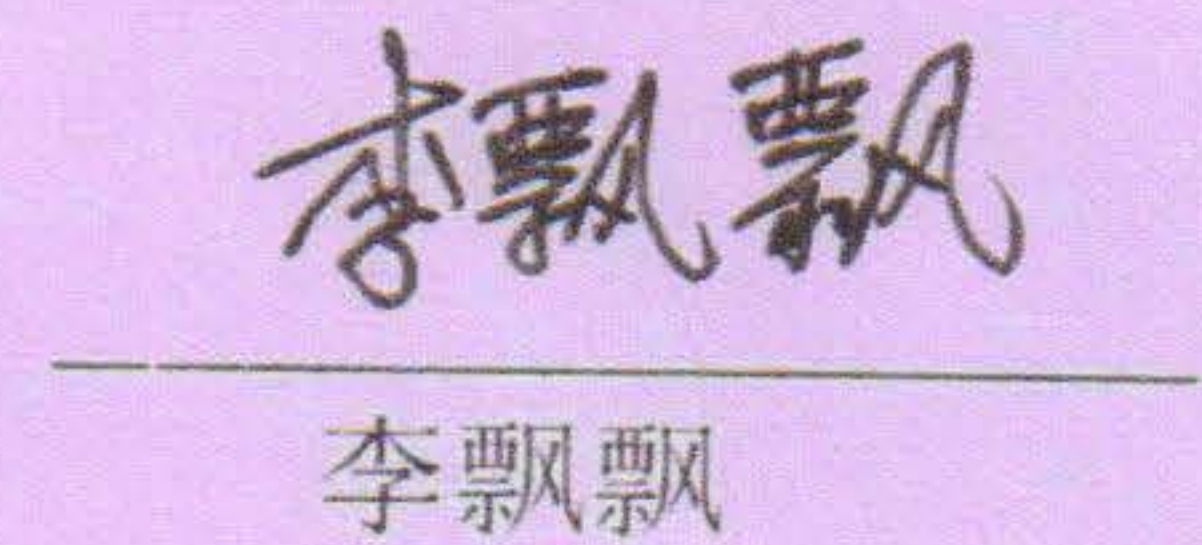 李飘飘
李飘飘